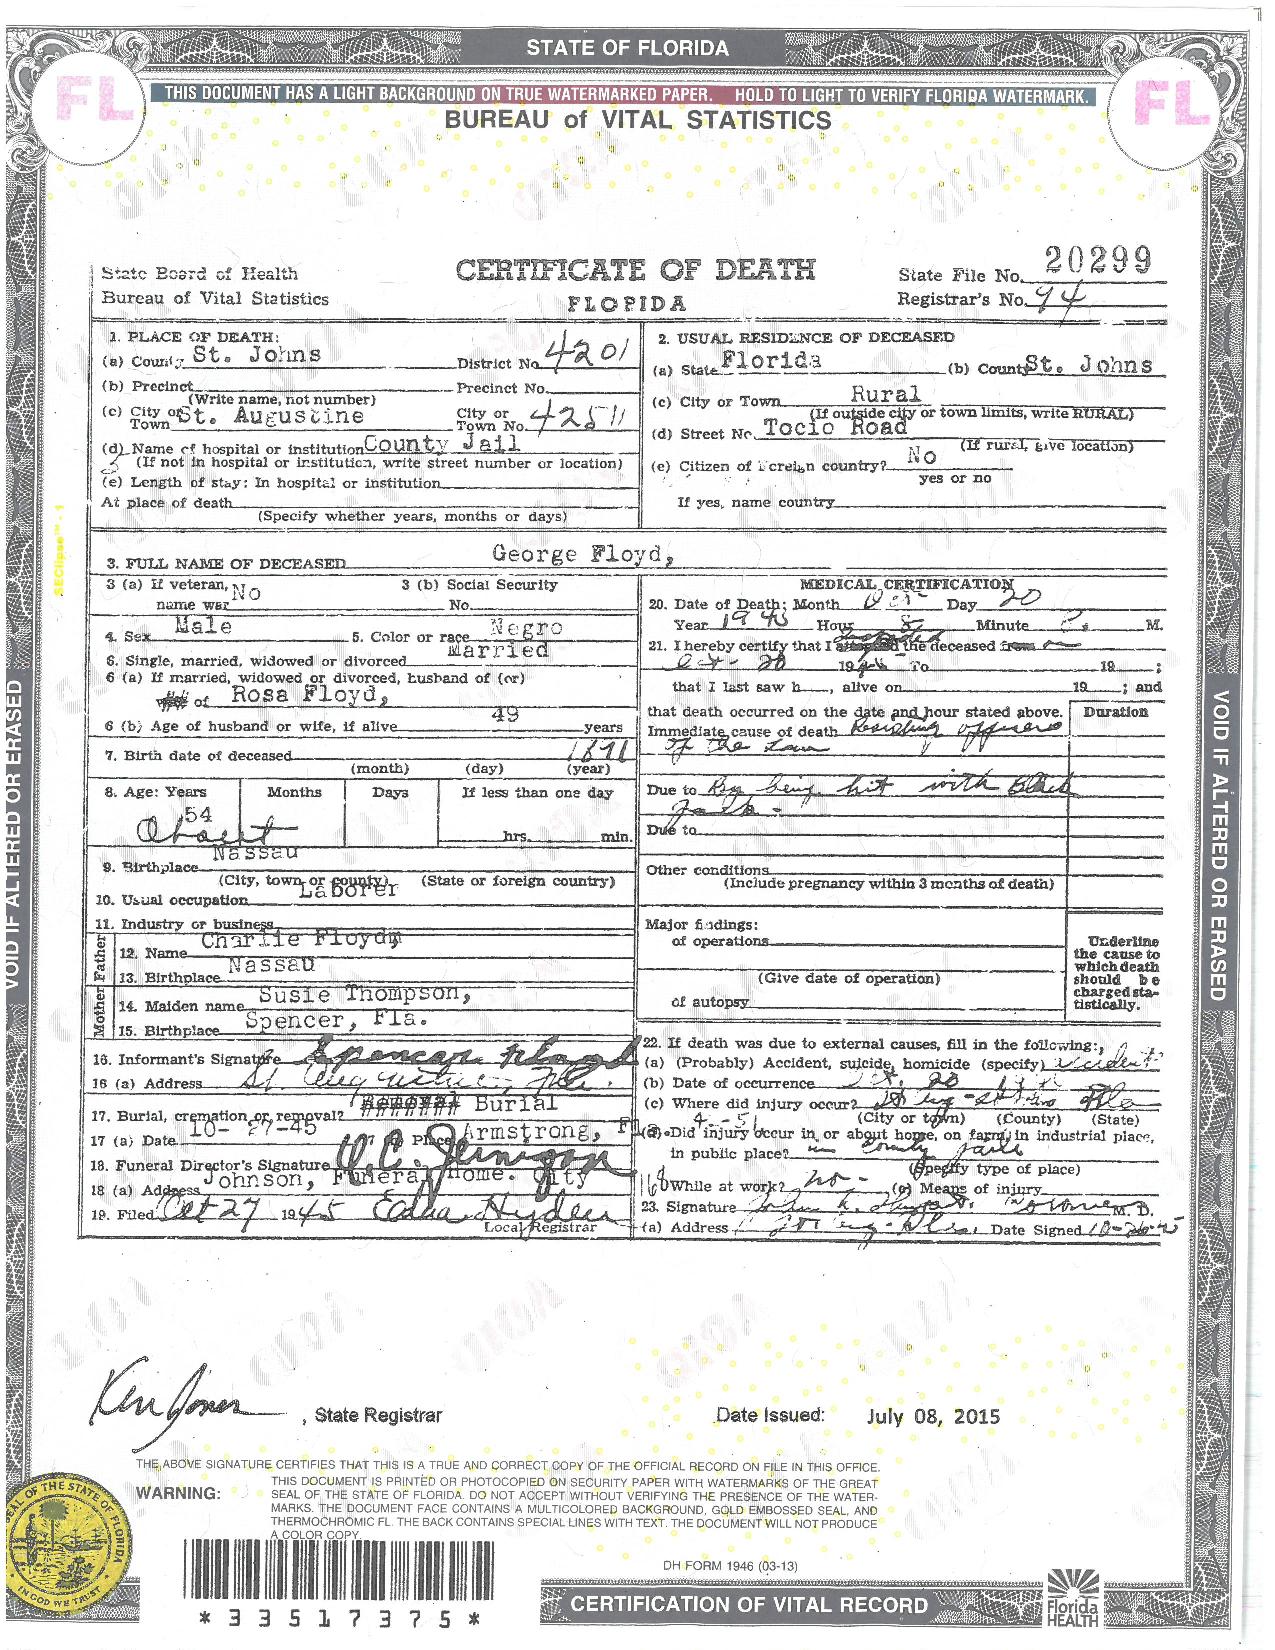 STATE OF FLORIDA
FL
FL
THIS DOCUMENT HAS A LIGHT BACKGROUND ON TRUE WATERMARKED PAPER. HOLD TO LIGHT TO VERIFY FLORIDA WATERMARK.
BUREAU of VITAL STATISTICS
State Board of Health
Bureau of Vital Statistics
CERTIFICATE OF DEATH
FLORIDA
State File No. 20299
Registrar's No. 94
1. PLACE OF DEATH:
(a) County St. Johns District No. 4201
(b) Precinct Precinct No.
(Write name, not number)
(c) City or Town St. Augustine City or Town No. 42511
(d) Name of hospital or institution County Jail
(If not in hospital or institution, write street number or location)
(e) Length of stay: In hospital or institution
At place of death
(Specify whether years, months or days)
2. USUAL RESIDENCE OF DECEASED
(a) State Florida (b) County St. Johns
(c) City or Town Rural
(If outside city or town limits, write RURAL)
(d) Street No. Tocio Road
(If rural, give location)
(e) Citizen of foreign country? No
yes or no
If yes, name country
3. FULL NAME OF DECEASED George Floyd,
3 (a) If veteran, name war No 3 (b) Social Security No.
4. Sex Male 5. Color or race Negro
6. Single, married, widowed or divorced Married
6 (a) If married, widowed or divorced, husband of (or)
of Rosa Floyd,
6 (b) Age of husband or wife, if alive 49 years
7. Birth date of deceased 1891
(month) (day) (year)
8. Age: Years Months Days If less than one day
54
About hrs. min.
9. Birthplace Nassau
(City, town or county) (State or foreign country)
10. Usual occupation Laborer
11. Industry or business
Father
12. Name Charlie Floyd,
13. Birthplace Nassau
Mother
14. Maiden name Susie Thompson,
15. Birthplace Spencer, Fla.
16. Informant's Signature Spencer Floyd
16 (a) Address St. Augustine, Fla.
17. Burial, cremation or removal? Burial
17 (a) Date 10-27-45 17 (b) Place Armstrong, F
18. Funeral Director's Signature
18 (a) Address Johnson, Funeral Home. City
19. Filed Oct 27 1945
Local Registrar
MEDICAL CERTIFICATION
20. Date of Death: Month Oct Day 20
Year 1945 Hour 8 Minute M.
21. I hereby certify that I the deceased from
Oct- 20 1945 To 19 ;
that I last saw h , alive on 19 ; and
that death occurred on the date and hour stated above.
Duration
Immediate cause of death Resisting officers
of the Law
Due to By being hit with Black
Jack -
Due to
Other conditions
(Include pregnancy within 3 months of death)
Major findings:
of operations
(Give date of operation)
of autopsy
Underline the cause to which death should be charged statistically.
22. If death was due to external causes, fill in the following:
(a) (Probably) Accident, suicide, homicide (specify) Accident
(b) Date of occurrence Oct. 20 1945
(c) Where did injury occur?
(City or town) (County) (State)
(d) Did injury occur in or about home, on farm, in industrial place,
in public place? in County Jail
(Specify type of place)
While at work? no - (e) Means of injury
23. Signature M. D.
(a) Address Date Signed 10-26-45
VOID IF ALTERED OR ERASED
VOID IF ALTERED OR ERASED
SEClipse™ - 1
Ken Jones, State Registrar
Date Issued: July 08, 2015
THE ABOVE SIGNATURE CERTIFIES THAT THIS IS A TRUE AND CORRECT COPY OF THE OFFICIAL RECORD ON FILE IN THIS OFFICE.
WARNING:
THIS DOCUMENT IS PRINTED OR PHOTOCOPIED ON SECURITY PAPER WITH WATERMARKS OF THE GREAT
SEAL OF THE STATE OF FLORIDA. DO NOT ACCEPT WITHOUT VERIFYING THE PRESENCE OF THE WATER-
MARKS. THE DOCUMENT FACE CONTAINS A MULTICOLORED BACKGROUND, GOLD EMBOSSED SEAL, AND
THERMOCHROMIC FL. THE BACK CONTAINS SPECIAL LINES WITH TEXT. THE DOCUMENT WILL NOT PRODUCE
A COLOR COPY.
SEAL OF THE STATE OF FLORIDA
IN GOD WE TRUST
*33517375*
DH FORM 1946 (03-13)
CERTIFICATION OF VITAL RECORD
Florida
HEALTH